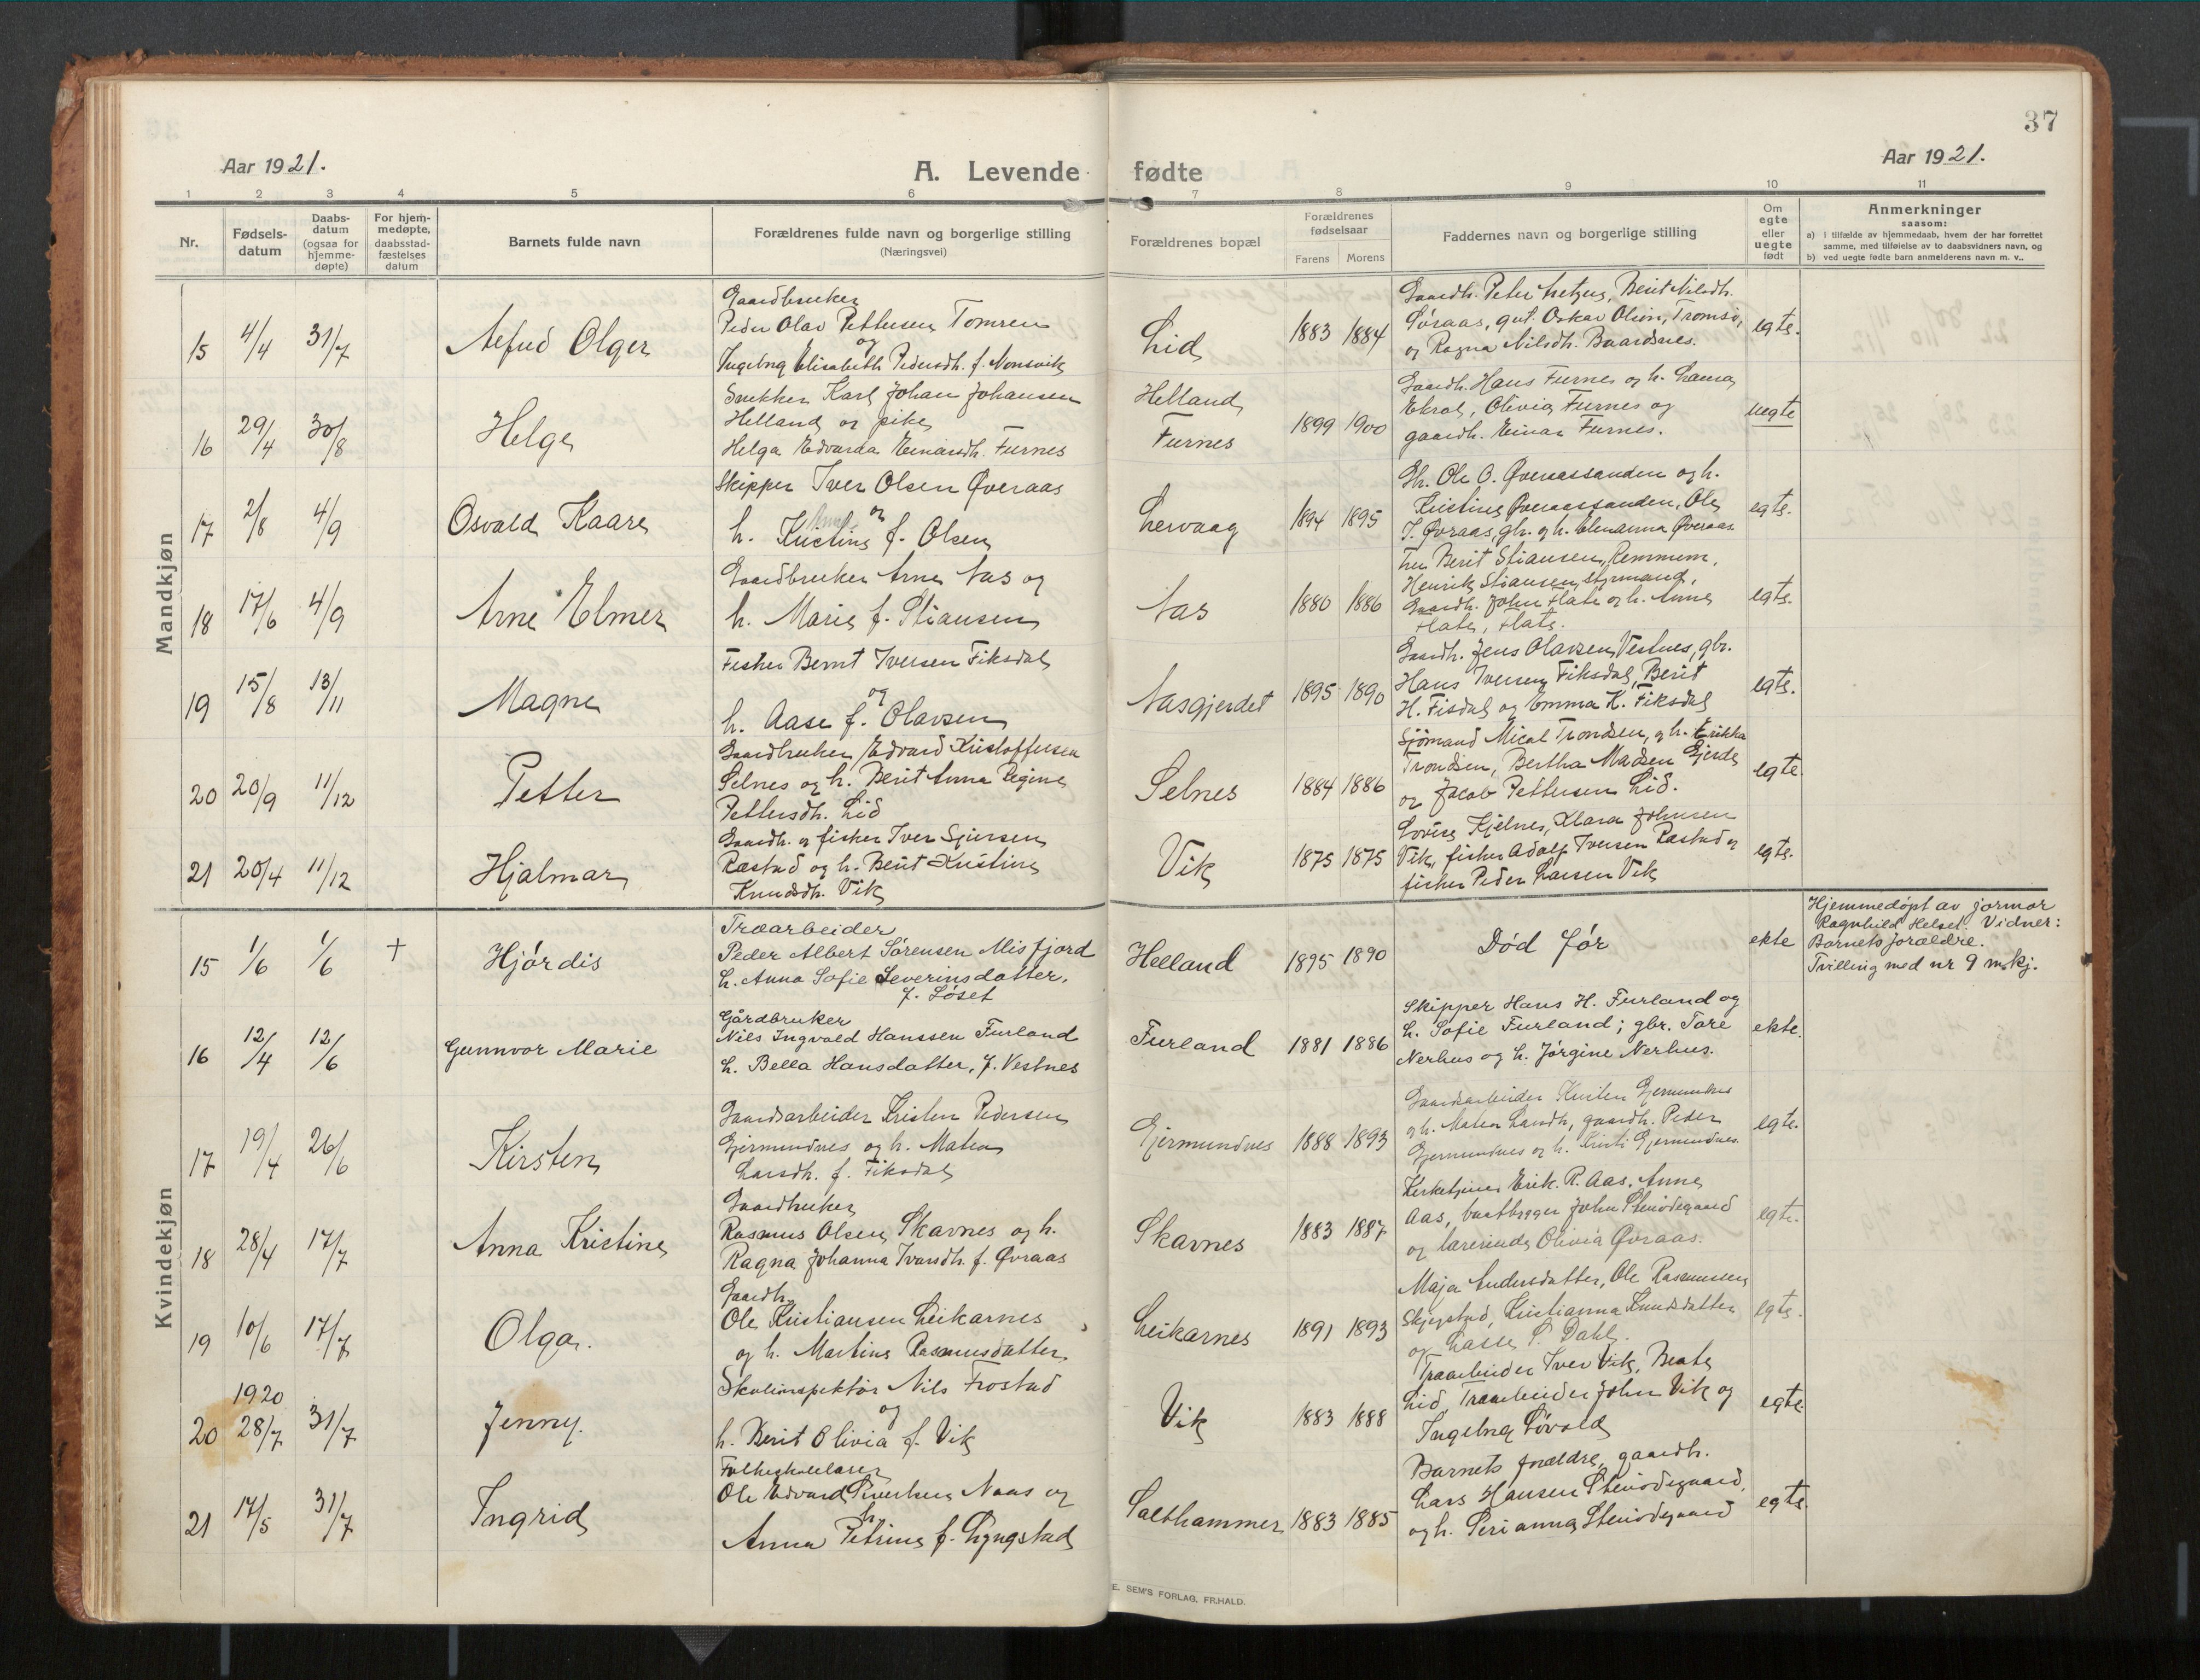 37
Aar 1921.
A. Levende fødte
Aar 1921.
1 2 3 4 5 6 7 8 9 10 11
Nr.
Fødsels-
datum
Daabs-
datum
(ogsaa for
hjemme-
døpte)
For hjem-
medøpte,
daabsstad-
fæstelses
datum
Barnets fulde navn
Forældrenes fulde navn og borgerlige stilling
(Næringsvei)
Forældrenes bopæl
Forældrenes
fødselsaar
Farens Morens
Faddernes navn og borgerlige stilling
Om
egte
eller
uegte
født
Anmerkninger
saasom:
a) i tilfælde av hjemmedaab, hvem der har forrettet
samme, med tilføielse av to daabsvidners navn, og
b) ved uegte fødte barn anmelderens navn m. v..
Mandkjøn
15 4/4 31/7
Olger
Gaardbruker
Peder Olav Pettersen Tomren
og
Ingebrg Elisabeth Pedersdh. f. Nonsvik
Lid
1883 1884
Gaardb. Peter Berit Nilsdh.
Søraas, gut. Oskar Olsen, Tromsø,
og Ragna Nilsdh. Baardsnes.
egte.
16 29/4 30/8
Helge
Snekker Karl Johan Johansen
Helland og pike
Helga Edvarda Einarsdh. Furnes
Helland
Furnes
1899 1900
Gaardb. Hans Furnes og h. Lama
Ekrol, Olivia Furnes og
gaardb. Einar Furnes.
uegte
17 2/8 4/9
Osvald Kaare
Skipper Iver Olsen Øveraas
og
h. Kristine f. Olsen
Lervaag
1894 1895
Gb. Ole O. Øveraassanden og h.
Kristine Øveraassanden, Ole
I. Øvraas, gbr. og h. Elenanna Øveraas.
egte.
18 17/6 4/9
Arne Elmer
Gaardbruker Arne Aas og
h. Marie f. Stiansen
Aas
1880 1886
Fru Berit Stiansen, Remmem,
Henrik Stiansen, styrmand,
Gaardb. John Flate og h. Anne
Flate, Flate.
egte.
19 15/8 13/11
Magne
Fisker Bernt Iversen Fiksdal
og
h. Aase f. Olavsen
Aasgjerdet
1895 1890
Gaardb. Jens Olavsen Vestnes, gbr.
Hans Iversen Fiksdal, Berit
H. Fisdal og Emma K. Fiksdal
egte.
20 20/9 11/12
Petter
Gaardbruker Edvard Kristoffersen
Selnes og h. Berit Anna Regine
Pettersdh. Lid
Selnes
1884 1886
Sjömand Mical Trondsen, og h. Erikka
Trondsen, Bertha Madsen Gjerde
og Jacob Pettersen Lid.
egte.
21 20/4 11/12
Hjalmar
Gaardb. og fisker Iver Sjursen
Rastad og h. Berit Kristine
Knudsdh. Vik
Vik
1875 1875
Lovise Kjelnes, Klara Johnsen
Vik, fisker Adolf Iversen Rastad og
fisker Peder Larsen Vik
egte.
Kvindekjøn
15 1/6 1/6 +
Hjørdis
Træarbeider
Peder Albert Sørensen Misfjord
h. Anna Sofie Severinsdatter,
f. Løset
Helland
1895 1890
Død før
ekte
Hjemmedøpt av jormor
Ragnhild Helset. Vidner:
Barnets forældre.
Tvilling med nr 9 m.kj.
16 12/4 12/6
Gunnvor Marie
Gårdbruker
Nils Ingvald Hanssen Furland
h. Bella Hansdatter, f. Vestnes
Furland
1881 1886
Skipper Hans H. Furland og
h. Sofie Furland; gbr. Tore
Nerhus og h. Jørgine Nerhus.
ekte.
17 19/4 26/6
Kirsten
Gaardsarbeider Kristen Pedersen
Gjermundnes og h. Matea
Larsdh. f. Fiksdal
Gjermundnes
1888 1893
Gaardsarbeider Kristen Gjermundnes
og h. Matea Larsdh, gaardb. Peder
Gjermundnes og h. Kristi Gjermundnes.
egte.
18 28/4 17/7
Anna Kristine
Gaardbruker
Rasmus Olsen Skarnes og h.
Ragna Johanna Ivarsdh. f. Øvraas
Skarnes
1883 1887
Kirketjener Erik. R. Aas, Anne
Aas, baatbygger John Stenødegaard
og lærerinde Olivia Øvraas.
egte.
19 10/6 17/7
Olga.
Gaardb.
Ole Kristiansen Leikarnes
og h. Martine Rasmusdatter
Leikarnes
1891 1893
Maja Andersdatter, Ole Rasmussen
Skjegstad, Kristianna Knudsdatter
og Lasse P. Dahl.
egte.
20 1920 28/7 31/7
Jenny.
Skoleinspektør Nils Frostad
og
h. Berit Olivia f. Vik
Vik
1883 1888
Træarbeider Iver Vik, Beate
Lid, Træarbeider John Vik og
Ingebrg Løvold
egte
21 17/5 31/7
Ingrid
Folkeskolelærer
Ole Edvard Sivertsen Naas og
h.
Anna Petrine f. Lyngstad
Salthammer
1883 1885
Barnets forældre, gaardb.
Lars Hansen Stenødegaard,
og h. Serianna Stenødegaard
egte.
E. SEM'S FORLAG, FR.HALD.